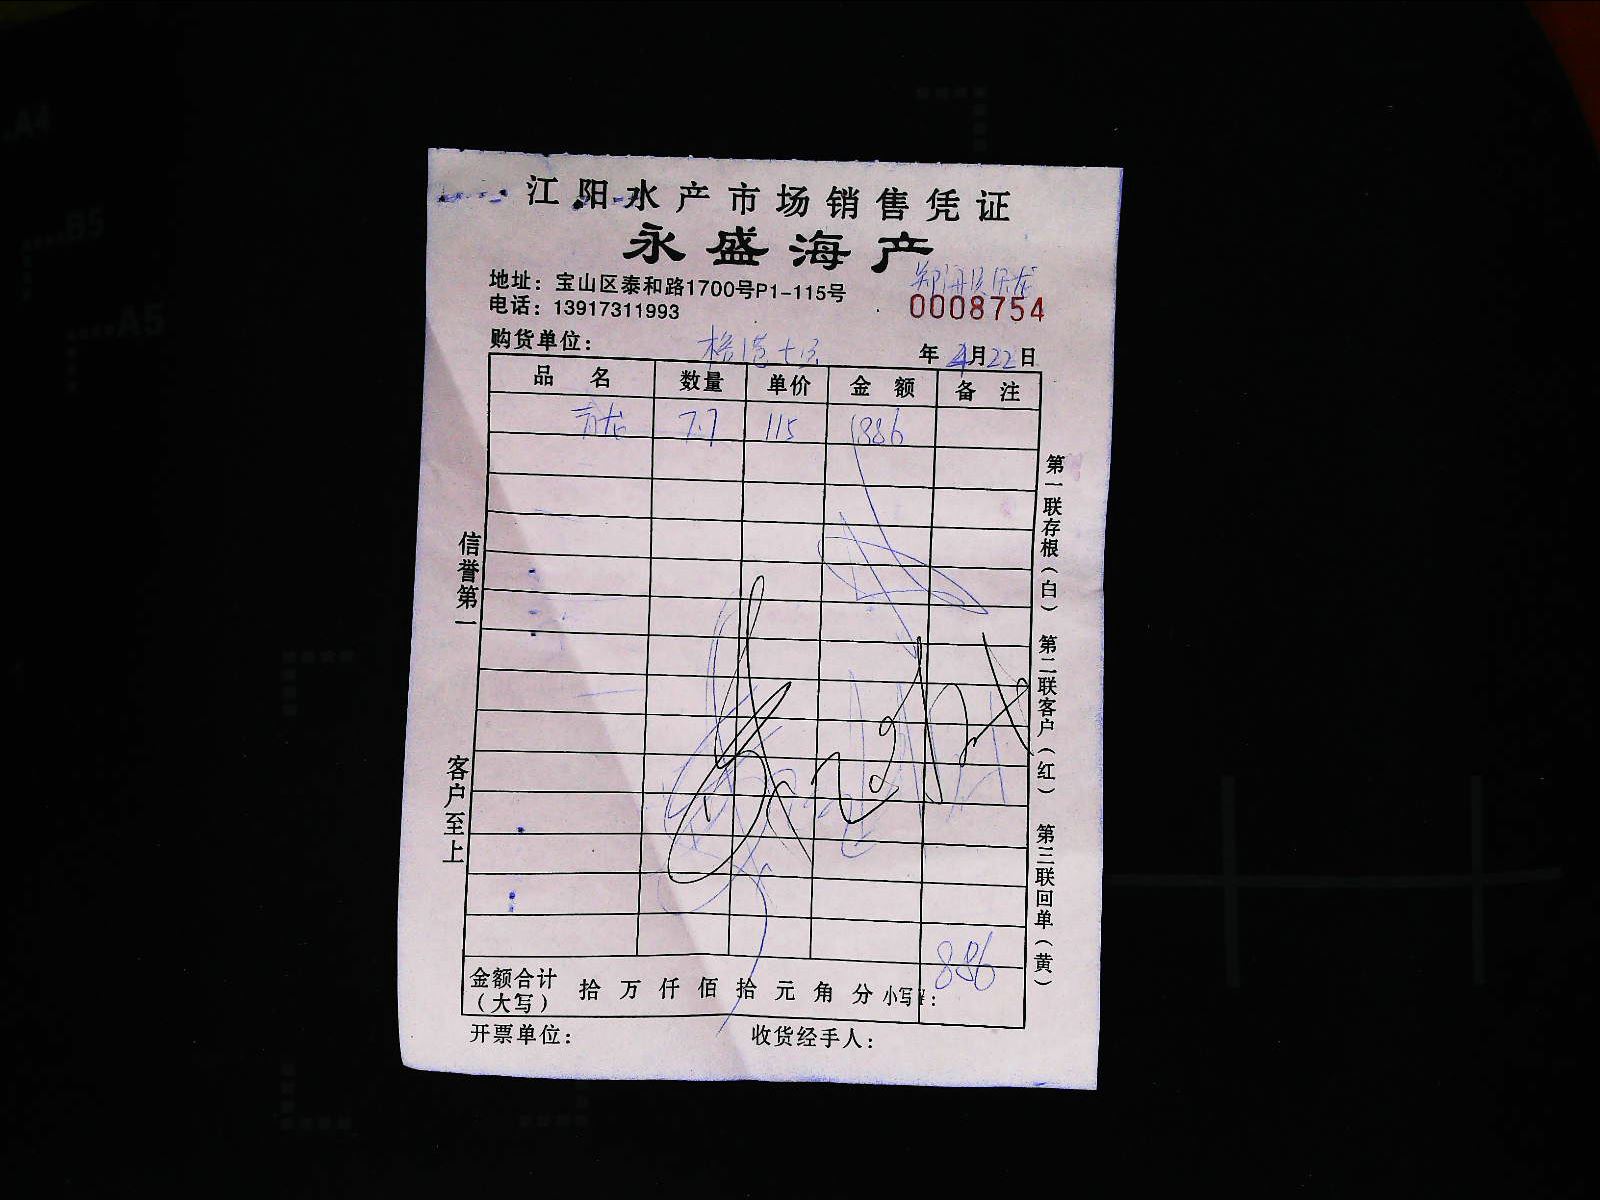 江阳水产市场销售凭证
永盛海产
地址：宝山区泰和路1700号P1-115号
电话：13917311993
0008754
购货单位：
年 4月22日
品名 数量 单价 金额 备注
青龙 7.7 115 886
信誉第一
客户至上
第一联存根（白） 第二联客户（红） 第三联回单（黄）
886
金额合计（大写） 拾 万 仟 佰 拾 元 角 分 小写¥：
开票单位： 收货经手人：